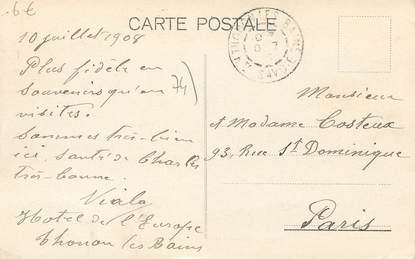 6€
CARTE POSTALE
THONON-LES-BAINS
SAVOIE
10 juillet 1908
Plus fidèle en
souvenirs qu'en
visites.
74)
Sommes très-bien
ici, santé de Charles
très-bonne.
Viala
Hotel de l'Europe
Thonon les Bains
Monsieur
et Madame Costeux
93, Rue St Dominique
Paris